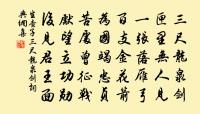 三尺龍泉劍
匣里無人見
一張落雁弓
百支金花箭
為國竭忠貞
苦處曾征戰
獻望立功勳
後見君王面
生查子三尺龍泉劍詞